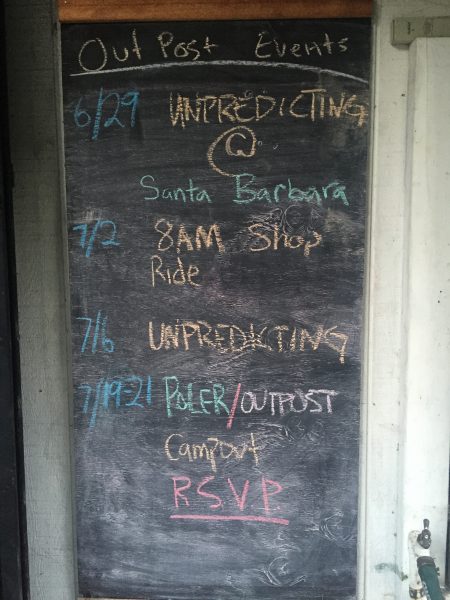 Out Post Events
6/29 UNPREDICTING
@
Santa Barbara
7/2 8AM Shop
Ride
7/6 UNPREDICTING
7/19-21 POLER/OUTPOST
Campout
R.S.V.P.